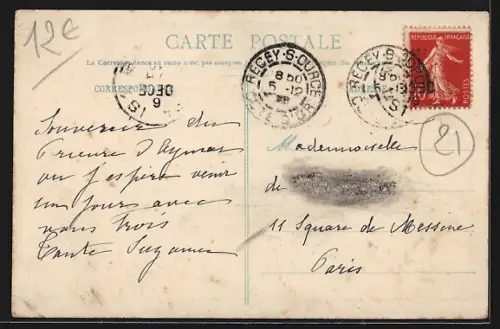 12€
CARTE POSTALE
La Correspondance au recto n'est pas acceptée
CORRESPONDANCE
RECEY-S-OURCE
8 50
5 -12
CÔTE D'OR
RECEY-S-OURCE
8 50
RÉPUBLIQUE FRANÇAISE
POSTES
21
Souvenir du
Prieuré d'Aymar
où j'espère venir
un jour avec
vous trois
Tante Suzanne
Mademoiselle
de
11 Square de Messine
Paris